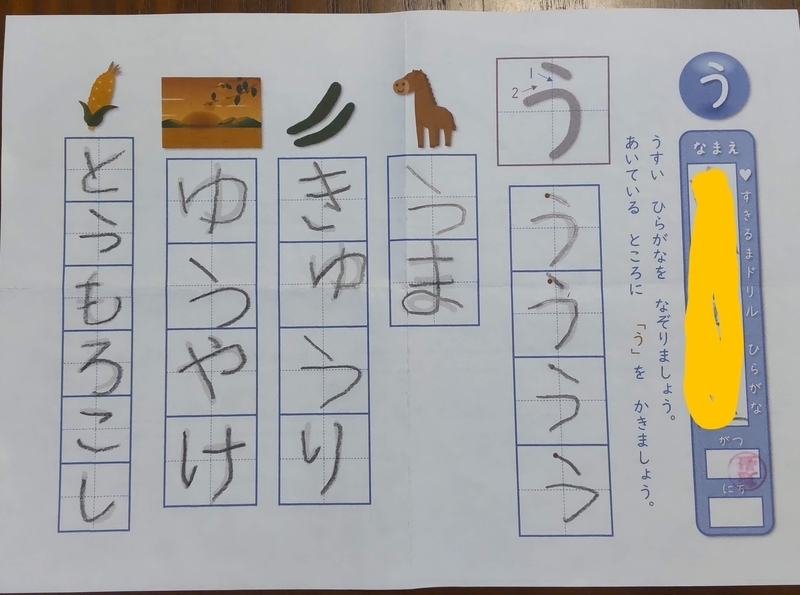 う
なまえ
♥すきるまドリル ひらがな
がつ
にち
うすい ひらがなを なぞりましょう。
あいている ところに 「う」を かきましょう。
1
2
う
う
う
う
う
うま
きゅうり
ゆうやけ
とうもろこし